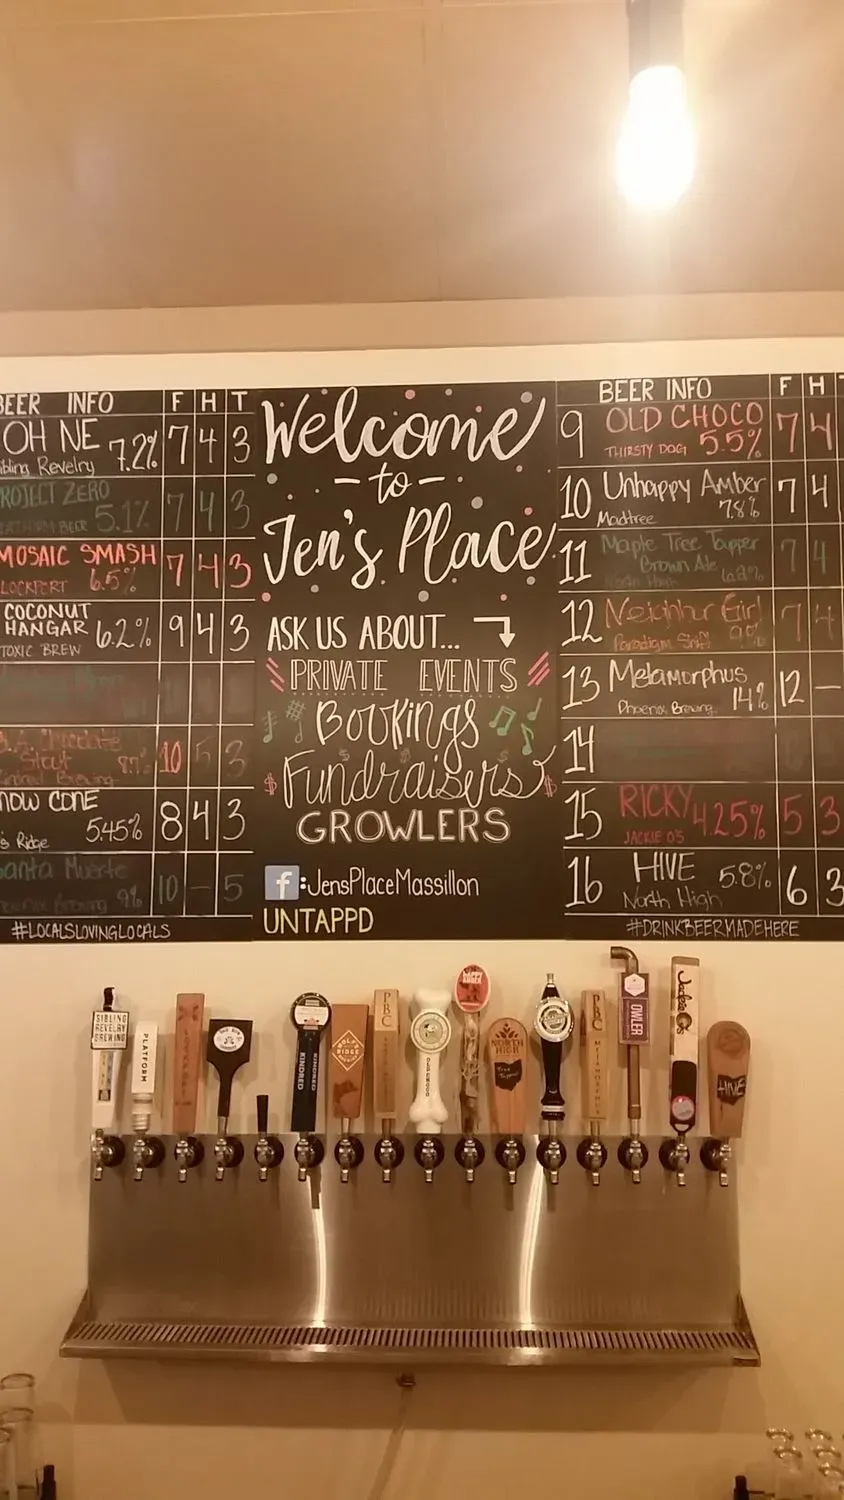 BEER INFO F H T
OH NE 7.2% 7 4 3
Revelry
PROJECT ZERO 7 4 3
5.1%
MOSAIC SMASH 7 4 3
LOCKPORT 6.5%
COCONUT
HANGAR 6.2% 9 4 3
TOXIC BREW
Chocolate
Stout 8.7% 10 5 3
Kindred Brewing
CONE 8 4 3
Ridge 5.45%
Santa Muerte 10 - 5
Brewing 9%
#LOCALSLOVINGLOCALS
Welcome
-to-
Jen's Place
ASK US ABOUT...
PRIVATE EVENTS
Bookings
Fundraisers
GROWLERS
f :JensPlaceMassillon
UNTAPPD
BEER INFO F H
9 OLD CHOCO 7 4
THIRSTY DOG 5.5%
10 Unhappy Amber 7 4
Madtree 7.8%
11 Maple Tree Tapper 7 4
Brown Ale
North High
12 Neighbor Girl 7 4
Paradigm Shift
13 Metamorphus 12 -
Phoenix Brewing 14%
14
15 RICKY 4.25% 5 3
JACKIE O'S
16 HIVE 5.8% 6 3
North High
#DRINKBEERMADEHERE
SIBLING
REVELRY
BREWING
PLATFORM
KINDRED
WOLFS
RIDGE
PBC
NORTH
HIGH
PBC
OWLER
Jackie O's
HIVE